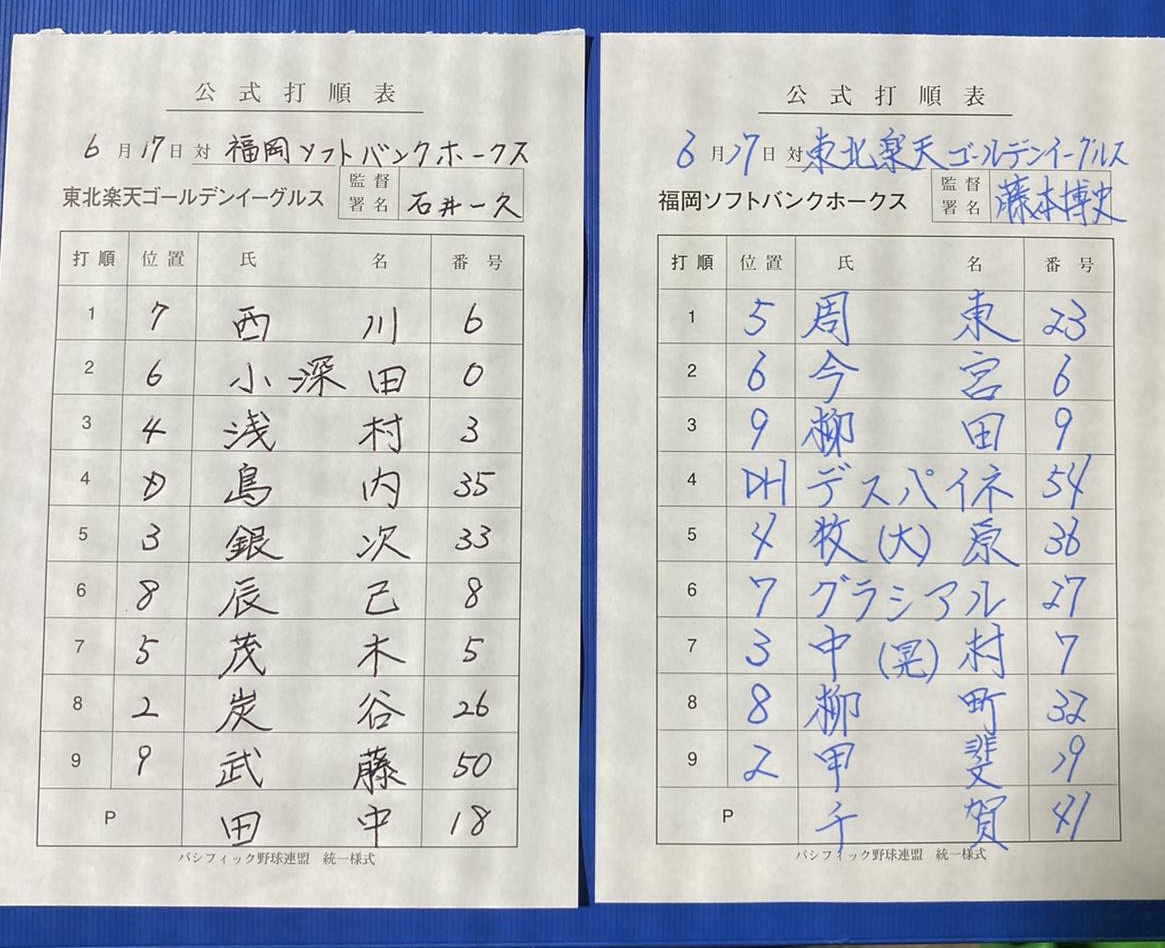 公式打順表
6月17日 対 福岡ソフトバンクホークス
東北楽天ゴールデンイーグルス 監督署名 石井一久
打順 位置 氏名 番号
1 7 西川 6
2 6 小深田 0
3 4 浅村 3
4 D 島内 35
5 3 銀次 33
6 8 辰己 8
7 5 茂木 5
8 2 炭谷 26
9 9 武藤 50
P 田中 18
パシフィック野球連盟 統一様式
公式打順表
6月17日 対 東北楽天ゴールデンイーグルス
福岡ソフトバンクホークス 監督署名 藤本博史
打順 位置 氏名 番号
1 5 周東 23
2 6 今宮 6
3 9 柳田 9
4 DH デスパイネ 54
5 4 牧(大)原 36
6 7 グラシアル 27
7 3 中(晃)村 7
8 8 柳町 32
9 2 甲斐 19
P 千賀 41
パシフィック野球連盟 統一様式